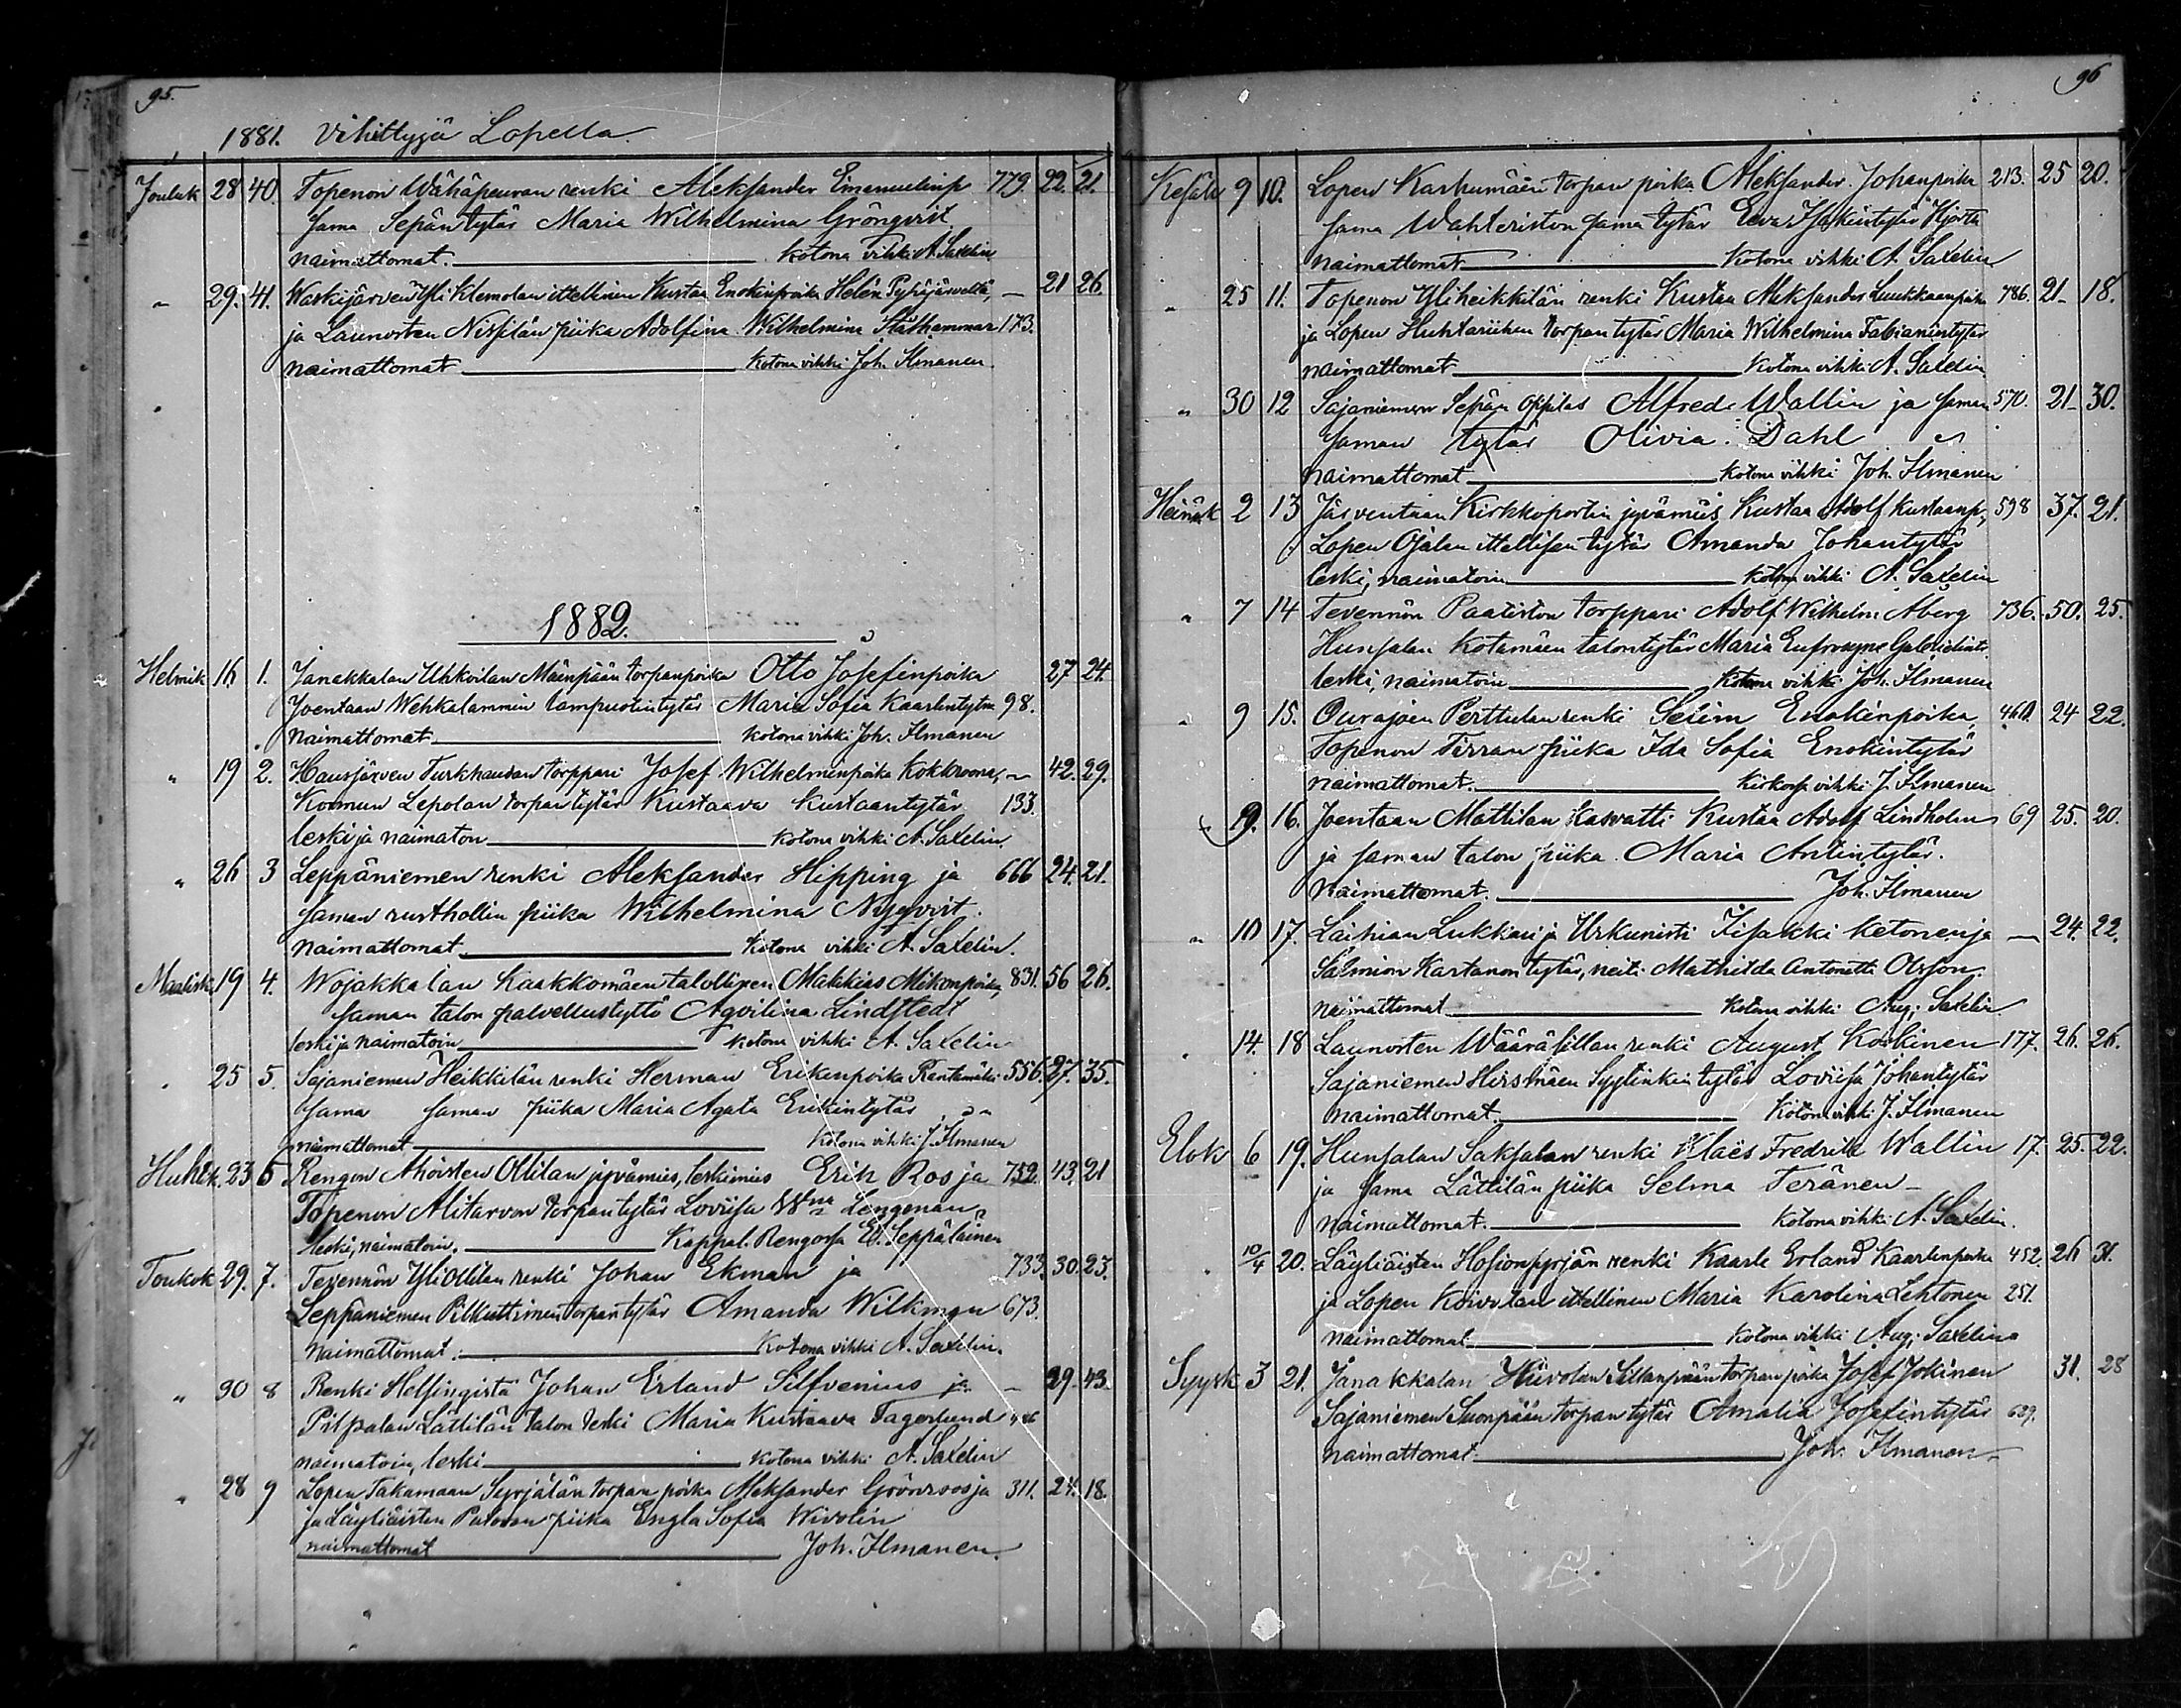 95.
1881. Vihittyjä Lopella
Jouluk 28 40. Topenon Wähäpeuran renki Aleksander Emanuelinp 779. 22. 21.
sama Sepän tytär Maria Wilhelmina Grönqvist
naimattomat. kotona vihki A. Saxelin
" 29. 41. Waskijärven Yli Klemolan ittellinen Kustaa Enokinpoika Helén Pyhäjärveltä, — 21 26.
ja Launosten Nissilän piika Adolfina Wilhelmina Stålhammar 173.
naimattomat kotona vihki Joh. Ilmanen
1882.
Helmik 16. 1. Janakkalan Uhkoilan Mäenpään torpanpoika Otto Josefinpoika 27 24.
Joentaan Wehkalammin lampuotintytär Maria Sofia Kaarlentytär 98.
Naimattomat kotona vihki Joh. Ilmanen
" 19 2. Hausjärven Turkhaudan torppari Josef Wilhelminpoika — 42. 29.
Kormun Lepolan torpan tytär Kustaava Kustaantytär 133.
leski ja naimaton kotona vihki A. Saxelin.
" 26 3 Leppäniemen renki Aleksander Hipping ja 666 24. 21.
saman rusthollin piika Wilhelmina Nyqvist.
naimattomat. kotona vihki A. Saxelin.
Maalisk. 19 4. Wojakkalan Kaakkomäen talollinen Mathias Mikonpoika, 831. 56 26.
saman talon palvellustyttö Aqvilina Lindstedt
leski ja naimatoin kotona vihki A. Saxelin
" 25 5. Sajaniemen Heikkilän renki Herman Erikinpoika Rantamäki 556. 27. 35.
sama saman piika Maria Agata Erikintytär
naimattomat kotona vihki J. Ilmanen
Huhtik. 23 6 Rengon Ahoisten Ollilan jyvämies, leskimies Erik Ros ja 752. 43. 21
Topenon Alitarvon torpan tytär Lovisa
leski, naimatoin. Kappal. Rengossa Seppäläinen
Toukok 29. 7. Tevennön Yliollilan renki Johan Ekman ja 733. 30. 23.
Leppäniemen torpan tytär Amanda Wilkman 673.
naimattomat. Kotona vihki A. Saxelin.
" 30 8 Renki Helsingistä Johan Erland Silfvenius ja — 29. 43.
Pilpalan Lättilän talon leski Maria Kustaava Fagerlund
naimatoin, leski kotona vihki A. Saxelin
" 28 9 Lopen Takamaan Syrjälän torpan poika Aleksander Grönroos ja 311. 24. 18.
ja Läyliäisten piika Engla Sofia
naimattomat Joh. Ilmanen.
96
Kesäk 9 10. Lopen Karhumäen torpan poika Aleksander Johanpoika 213. 25 20.
sama Wahteriston sama tytär Eeva Hjerta
naimattomat kotona vihki A. Saxelin
" 25 11. Topenon Yliheikkilän renki Kustaa Aleksander Luukkaanpoika 786. 21. 18.
ja Lopen Huhtariihen torpan tytär Maria Wilhelmina Fabianintytär
naimattomat kotona vihki A. Saxelin
" 30 12 Sajaniemen Sepän oppilas Alfred Wallin ja saman 570. 21. 30.
saman tytär Olivia Dahl
naimattomat kotona vihki Joh. Ilmanen
Heinäk 2 13 Järventaan Kirkkoportin jyvämies Kustaa Adolf Kustaanp, 598 37. 21.
Lopen Ojalan ittellisen tytär Amanda Johantytär
leski, naimatoin kotona vihki A. Saxelin
" 7 14 Tevennön Paatiston torppari Adolf Wilhelm Åberg 736. 50. 25.
Hunsalan Kotamäen talontytär Maria Eufrosyne
leski, naimatoin kotona vihki Joh. Ilmanen
" 9 15. Ourajoen Perttulan renki Selim Enokinpoika 24 22.
Topenon Tirran piika Ida Sofia Enokintytär
naimattomat. kirkossa vihki J. Ilmanen
9. 16. Joentaan Mattilan kasvatti Kustaa Adolf Lindholm 69 25. 20.
ja saman talon piika Maria Antintytär.
Naimattomat. Joh. Ilmanen
" 10 17. Laihian Lukkari ja Urkunisti Iisakki Ketonen ja — 24. 22.
Salmion Kartanon tytär, neiti Mathilda Antonetta Olsson.
naimattomat kotona vihki Aug. Saxelin
" 14. 18 Launosten Wääräsillan renki August Koskinen 177. 26. 26.
Sajaniemen Hirsmäen tytär Lovisa Johantytär
naimattomat. Kotona vihki J. Ilmanen
Elok 6 19. Hunsalan Saksalan renki Klaës Fredrik Wallin 17. 25. 22.
ja sama Lättilän piika Selma Teränen
naimattomat. Kotona vihki A. Saxelin.
" 10/4 20. Läyliäisten renki Kaarle Erland Kaarlenpoika 452. 26 31.
ja Lopen Koivulan ittellinen Maria Karolina Lehtonen 251.
naimattomat kotona vihki Aug. Saxelin
Syysk 3 21. Janakkalan Hiivolan Sillanpään torpan poika Josef Jokinen 31. 28
Sajaniemen Suonpään torpan tytär Amalia Josefintytär 629.
naimattomat Joh. Ilmanen